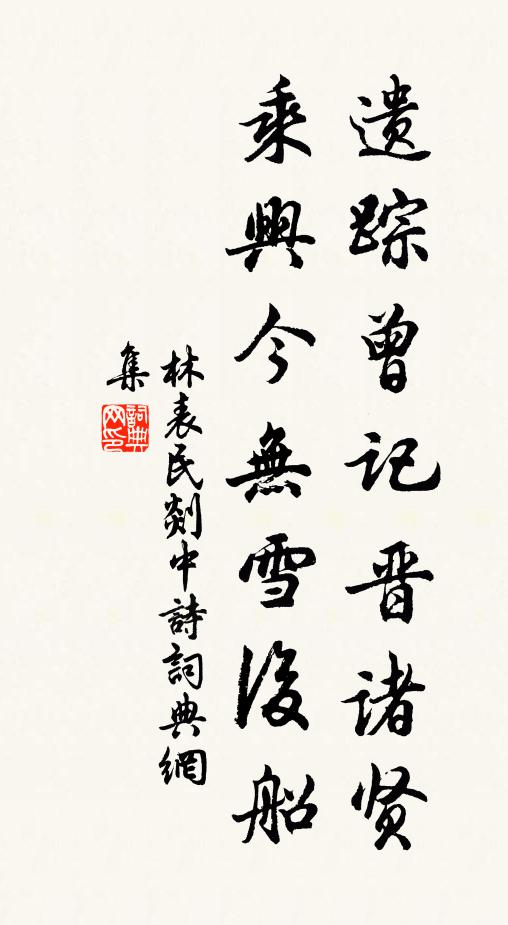 遗踪曾记晋诸贤
乘興今無雪後船
林表民剡中詩詞典網
集
詞典网印